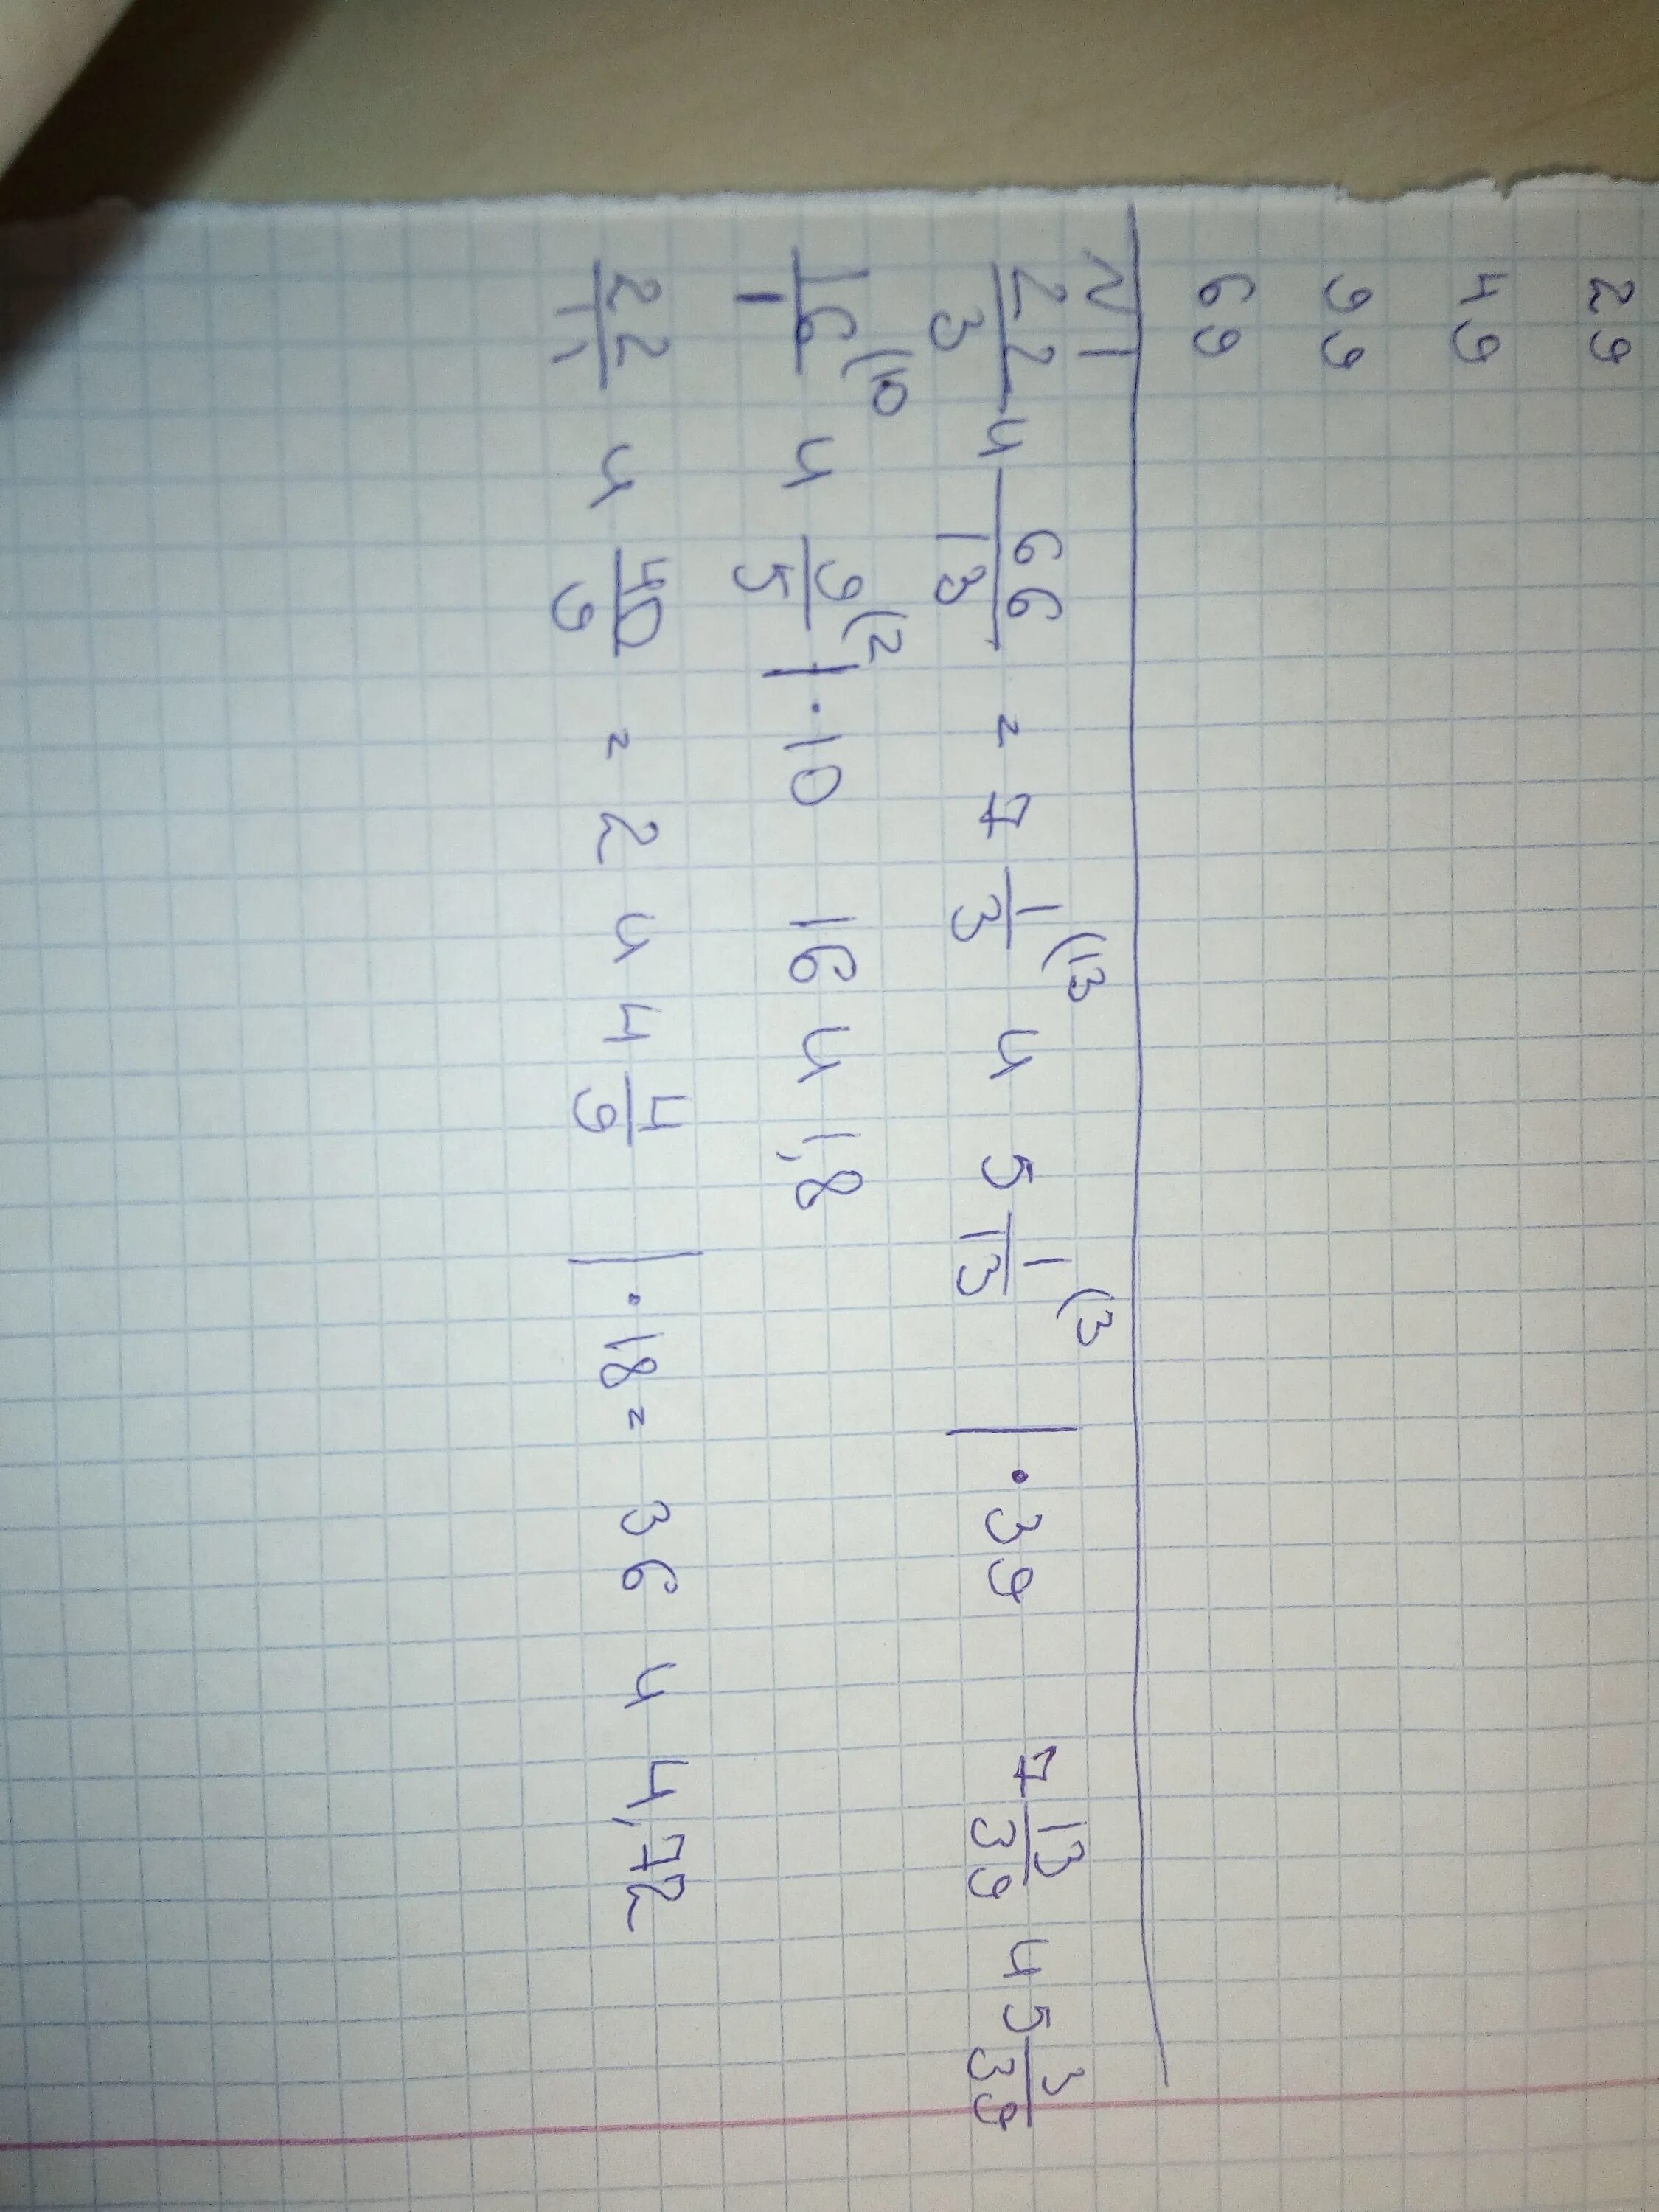 29
49
99
69
N1
22/3 и 66/13 = 7 1/3(13 и 5 1/13(3 | · 39 7 13/39 и 5 3/39
16/1(10 и 9/5(2 | · 10 16 и 1,8
22/11 и 40/9 = 2 и 4 4/9 | · 18 = 36 и 4,72